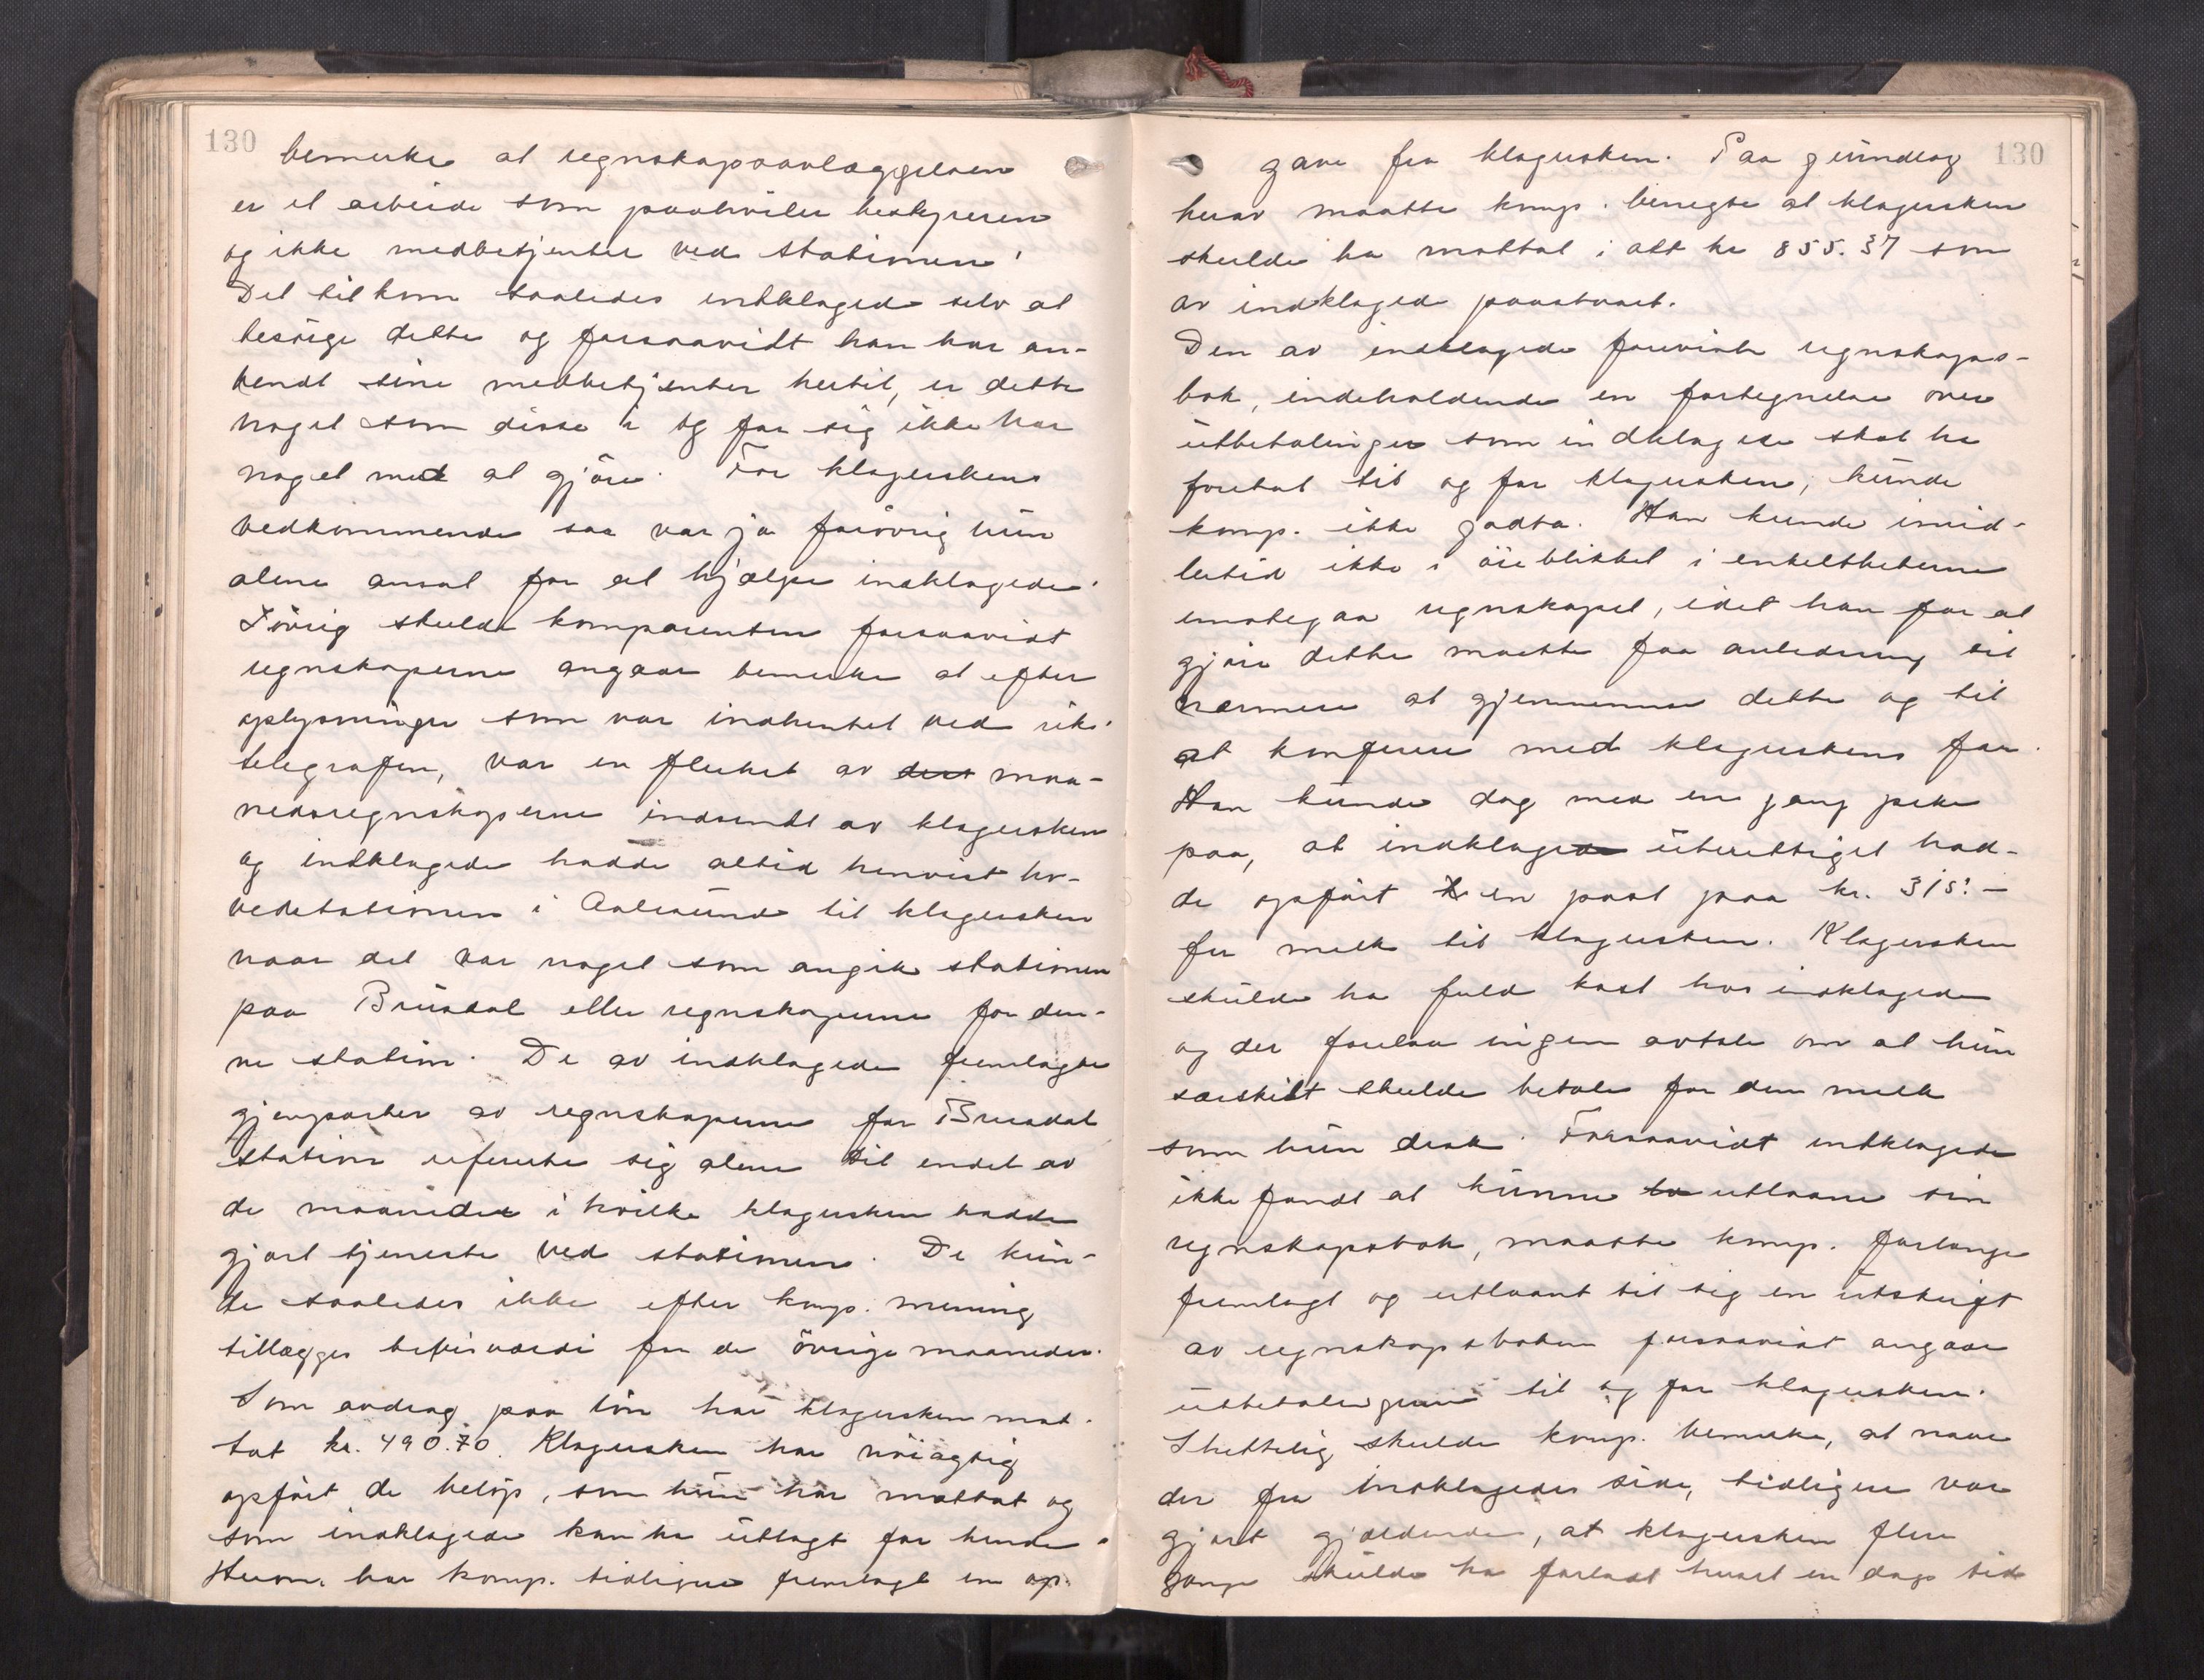 130
bemerke at regnskapsavlæggelsen
er et arbeide som paahviler bestyreren
og ikke medbetjenter ved stationen.
Det tilkom saaledes indklagede selv at
besörge dette og forsaavidt han har an-
vendt sine medbetjenter hertil, er dette
noget som disse i og for sig ikke har
noget med at gjöre. For klagerskens
vedkommende saa var jo forövrig hun
alene ansat for at hjælpe indklagede.
Iövrig skulde komparenten forsaavidt
regnskaperne angaar bemerke at efter
oplysninger som var indhentet ved riks-
telegrafen, var en flerhet av dess maa-
nedsregnskaperne indsendt av klagersken
og indklagede hadde altid henvist ho-
vedstationen i Aalesund til klagersken
naar det var noget som angik stationen
paa Brusdal eller regnskaperne for den-
ne station. De av indklagede fremlagte
gjenparter av regnskaperne for Brusdal
station refererte sig alene til endel av
de maaneder i hvilke klagersken hadde
gjort tjeneste ved stationen. De kun-
de saaledes ikke efter komp. mening
tillægges bevisværdi for de övrige maaneder.
Som avdrag paa lön har klagersken mot-
tat kr. 490.70. Klagersken har nöiagtig
opfört de belöp, som hun har mottat og
som indklagede kan ha utlagt for hende.
Herom har komp. tidligere fremlagt en op-
130
gave fra klagersken. Paa grundlag
herav maatte komp. benegte at klagersken
skulde ha mottat i alt kr 855.37 som
av indklagede paastaat.
Den av indklagede foreviste regnskaps-
bok, indeholdende en fortegnelse over
utbetalinger som indklagede skal ha
foretat til og for klagersken, kunde
komp. ikke godta. Han kunde imid-
lertid ikke i öieblikket i enkelthetene
imötegaa regnskapet, idet han for at
gjöre dette maatte faa anledning til
nærmere at gjennemse dette og til
at konferere med klagerskens far.
Han kunde dog med en gang peke
paa, at indklagede uberettiget had-
de opfört en post paa kr. 315.-
for melk til klagersken. Klagersken
skulde ha fuld kost hos indklagede
og der forelaa ingen avtale om at hun
særskilt skulde betale for den melk
som hun drak. Forsaavidt indklagede
ikke fandt at kunne ta utlaane sin
regnskapsbok, maatte komp. forlange
fremlagt og utlaant til sig en utskrift
av regnskapsboken forsaavidt angaar
utbetalingerne til og for klagersken.
Sluttelig skulde komp. bemerke, at naar
der fra indklagedes side, tidligere var
gjort gjældende, at klagersken flere
gange skulde ha forladt huset en dags tid